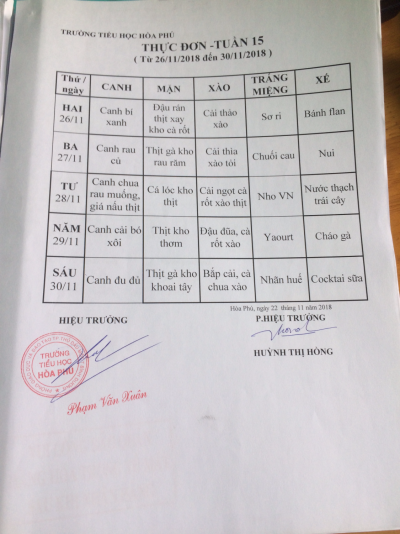 TRƯỜNG TIỂU HỌC HÒA PHÚ
THỰC ĐƠN -TUẦN 15
( Từ 26/11/2018 đến 30/11/2018 )
Thứ / ngày CANH MẶN XÀO TRÁNG MIỆNG XẾ
HAI 26/11 Canh bí xanh Đậu rán thịt xay kho cà rốt Cải thảo xào Sơ ri Bánh flan
BA 27/11 Canh rau củ Thịt gà kho rau răm Cải thìa xào tỏi Chuối cau Nui
TƯ 28/11 Canh chua rau muống, giá nấu thịt Cá lóc kho thịt Cải ngọt cà rốt xào thịt Nho VN Nước thạch trái cây
NĂM 29/11 Canh cải bó xôi Thịt kho thơm Đậu đũa, cà rốt xào Yaourt Cháo gà
SÁU 30/11 Canh đu đủ Thịt gà kho khoai tây Bắp cải, cà chua xào Nhãn huế Cocktai sữa
Hòa Phú, ngày 22 tháng 11 năm 2018
HIỆU TRƯỞNG P.HIỆU TRƯỞNG
TRƯỜNG
TIỂU HỌC
HÒA PHÚ
HUỲNH THỊ HỒNG
Phạm Văn Xuân